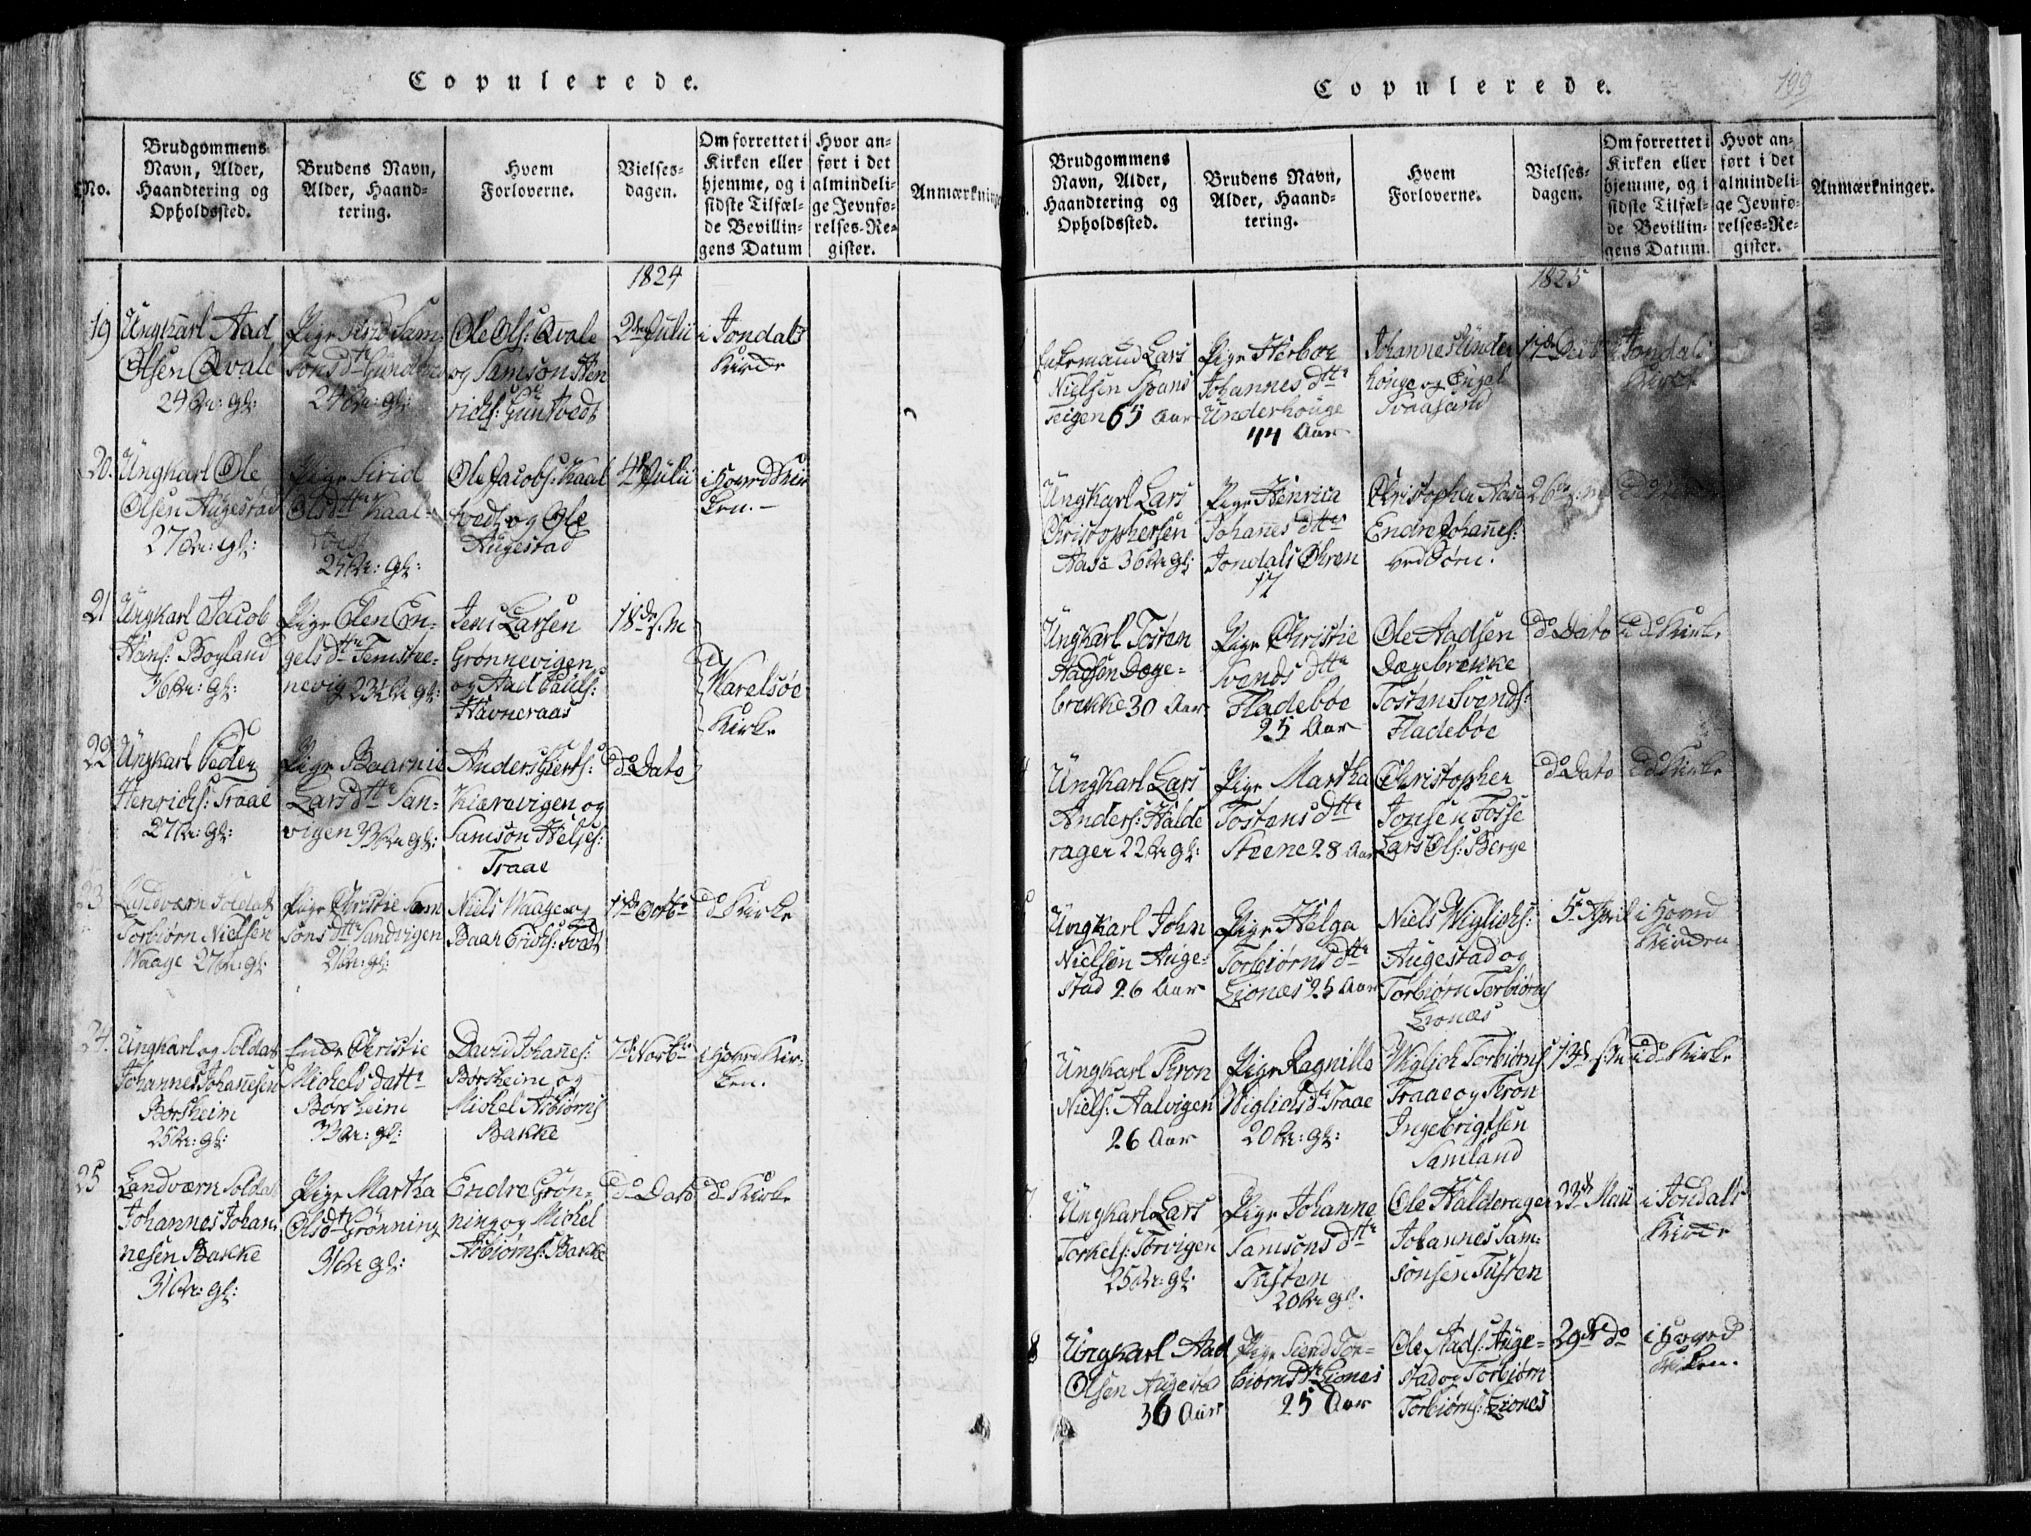 Copulerede.
No.
Brudgommens Navn, Alder, Haandtering og Opholdssted.
Brudens Navn, Alder, Haandtering.
Hvem Forloverne.
Vielsesdagen.
Om forrettet i Kirken eller hjemme, og i sidste Tilfælde Bevillingens Datum
Hvor anført i det almindelige Jevnførelses-Register.
Anmærkninge
1824
19
Ungkarl Aad
Olsen Qvale
24 Ar: gl:
Pige Sirid Sam-
sons dtr
24 Ar: gl:
Ole Ols: Qvale
og Samson Hen
richs: Guntvedt
2den Julii
i Jondals
Kirke
20.
Ungkarl Ole
Olsen Augestad
27 Ar: gl:
Pige Sirid
Ols dttr Kaal-
25 Ar: gl:
Ole Jacobs: Kaal
tvedt og Ole
Augestad
4de Julii
i Hoved Kir
ken.
21
Ungkarl Jacob
Hans: Boyland
36 Ar: gl:
Pige Elen En-
gels dtr Femstee-
nevig 23 1/2 Ar gl:
Jens Larsen
Grønnevigen
og Aad Pauls:
Havneraas
18de s. M
i
Varelsøe
Kirke
22
Ungkarl Peder
Henrichs: Traae
27 Ar: gl:
Pige Baarnie
Lars dttr San-
vigen 33 Ar gl:
Anders Giærts:
Kiærevigen og
Samson Helies:
Traae
do Dato
23
Landværn Soldat
Torbiørn Nielsen
Waage 27 Ar: gl:
Pige Christie Sam
sons dttr Sandvigen
26 Ar: gl:
Niels Waage og
Baar Erichs: Tvedt
17de Octbr
do Kirke
24.
Ungkarl og Soldat
Johannes Johannesen
Børsheim
25 Ar: gl:
Enke Christie
Michels datter
Børsheim
33 Ar: gl:
David Johannes:
Børsheim og
Michel Asbiørns
Bakke
7de Novbr
i Hoved Kir-
ken.
25
Landværn Soldat
Johannes Johan-
nesen Bakke
31 Ar: gl:
Pige Martha
Ols dtr Grønning
31 Ar gl:
Endre Grøn-
ning og Michel
Asbiørns: Bakke
do Dato
do Kirke
Copulerede.
199
Brudgommens Navn, Alder, Haandtering og Opholdssted.
Brudens Navn, Alder, Haandtering.
Hvem Forloverne.
Vielsesdagen.
Om forrettet i Kirken eller hjemme, og i sidste Tilfælde Bevillingens Datum.
Hvor anført i det almindelige Jevnførelses-Register.
Anmærkninger.
1825
Enkemand Lars
Nielsen Spans
teigen 65 Aar
Pige Herbor
Johannes dttr
Underhouge
44 Aar
Johannes Under
houge og Engel
Svaasand
i Jondals
Kirke
Ungkarl Lars
Christophersen
Aase 36 Ar gl:
Pige Henrica
Johannes dttr
Jondals Øhren
17
Christopher Aase
Endre Johannes:
ved Søen.
26de
do Kirke
Ungkarl Tosten
Aadsen Dæge-
brekke 30 Aar
Pige Christie
Svends dttr
Fladebøe
25 Aar
Ole Aadsen
Dægebrekke
Tosten Svends:
Fladebøe
do Dato
i do Kirke
4
Ungkarl Lars
Anders: Halde
rager 22 Ar gl:
Pige Martha
Tostens dttr
Steene 28 Aar
Christopher
Jonsen Fosse
Lars Ols: Berge
do Dato
i do Kirke
5
Ungkarl John
Nielsen Auge-
stad 26 Aar
Pige Helga
Torbiørns dttr
Lionæs 25 Aar
Niels Wiglichs:
Augestad og
Torbiørn Torbiørns
Lionæs
5te April
i Hoved
Kirken
6
Ungkarl Thron
Niels: Aalvigen
26 Aar
Pige Ragnilla
Wiglichs dtr Traae
20 Ar: gl:
Wiglich Torbiørns
Traae og Thron
Ingebrigtsen
Samland
13de s. M
i do Kirke
7.
Ungkarl Lars
Torkels: Torvigen
25 Ar: gl:
Pige Johanne
Samsons dttr
Tusten
20 Ar gl:
Ole Halderager
Johannes Sam-
sonsen Tusten
23de Maii
i Jondals
Kirke
8
Ungkarl Aad
Olsen Augestad
36 Aar
Pige Sirid Tor-
biørns dtr Lionæs
25 Aar
Ole Aads: Auge-
stad og Torbiørn
Torbiørns: Lionæs
29de do
i Hoved
Kirken.